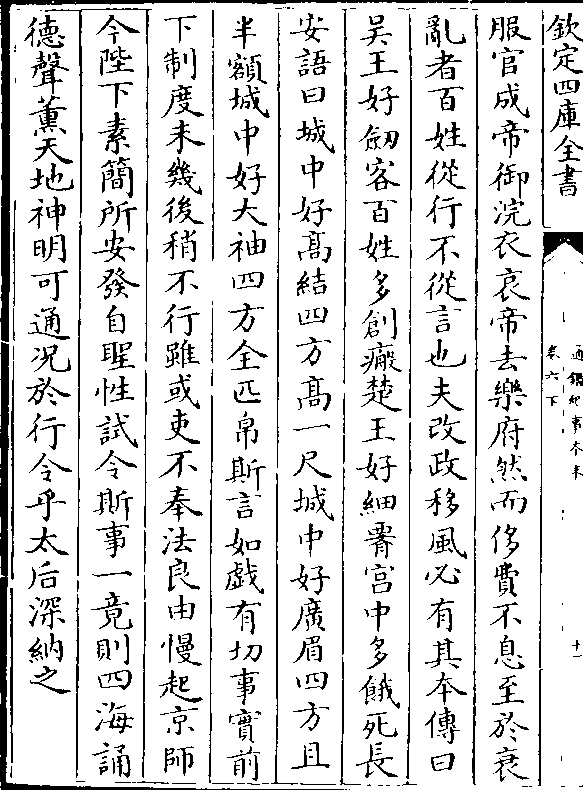 欽定四庫全書
通鑑紀事本末
卷六下
十一
服官成帝御浣衣哀帝去樂府然而侈費不息至於衰
亂者百姓從行不從言也夫改政移風必有其本傳曰
吴王好劒客百姓多創瘢楚王好細𦝫宫中多餓死長
安語曰城中好髙結四方髙一尺城中好廣眉四方且
半額城中好大袖四方全匹帛斯言如戯有切事實前
下制度未幾後稍不行雖或吏不奉法良由慢起京師
今陛下素簡所安發自聖性試令斯事一竟則四海誦
德聲薰天地神明可通况於行令乎太后深納之